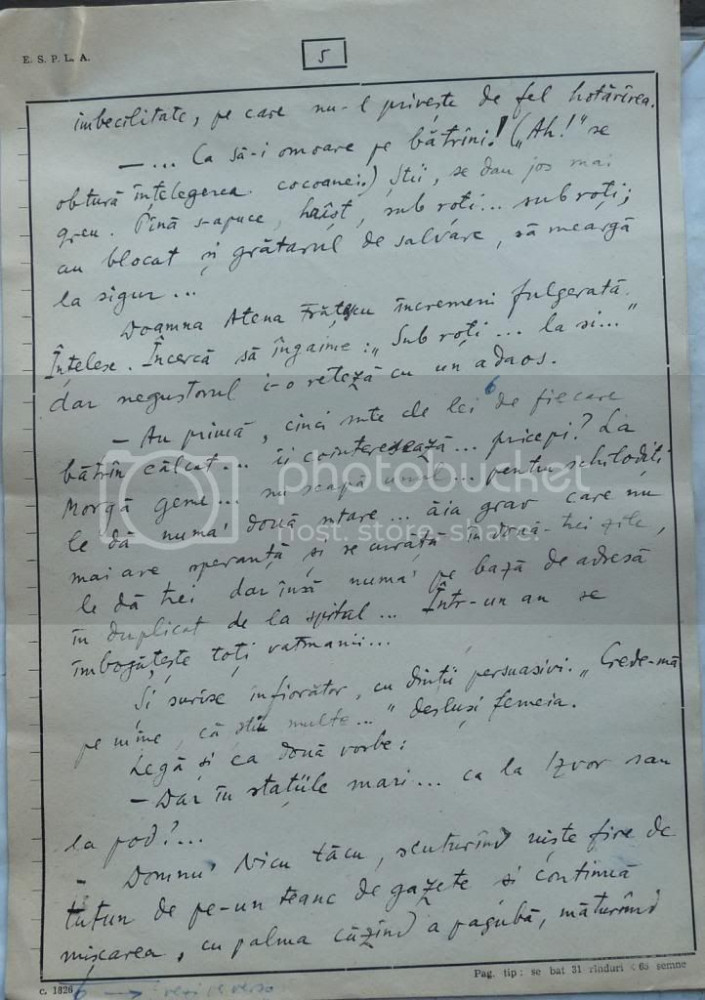 E. S. P. L. A.
5
imbecilitate, pe care nu-l privește de fel hotărîrea.
— ... Ca să-i omoare pe bătrîni! („Ah!" se
obtură înțelegerea cocoanei.) Știi, se dau jos mai
greu. Pînă s-apuce, haîșt, sub roți... sub roți;
au blocat și grătarul de salvare, să meargă
la sigur...
Doamna Atena Frățescu încremeni fulgerată.
Înțelese. Încercă să îngaime: „Sub roți... la si..."
dar negustorul i-o reteză cu un adaos.
— Au primă, cinci sute de lei 6 de fiecare
bătrîn călcat... îi cointeresează... pricepi? La
Morgă geme... nu scapă unul... pentru schilodiți
le dă numa' două sutare... ăia grav care nu
mai are speranță și se curăță în două-trei zile,
le dă trei dar însă numa' pe bază de adresă
în duplicat de la spital... Într-un an se
îmbogățește toți vatmanii...
Și surise înfiorător, cu dinții persuasivi. „Crede-mă
pe mine, că știu multe..." desluși femeia.
Legă și ea două vorbe:
— Dar în stațiile mari... ca la Izvor sau
la pod?...
- Domnu' Nicu tăcu, scuturînd niște fire de
tutun de pe-un teanc de gazete și continuă
mișcarea, cu palma căzînd a pagubă, măturînd
Pag. tip: se bat 31 rînduri × 65 semne
c. 1826
6 → vezi verso
photobucket
host. store. share.